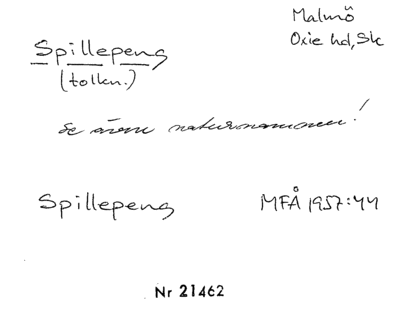 Malmö
Spillepeng
Oxie hd, Sk
(tolkn.)
se även naturnamnen!
Spillepeng MFÅ 1957:44
Nr 21462